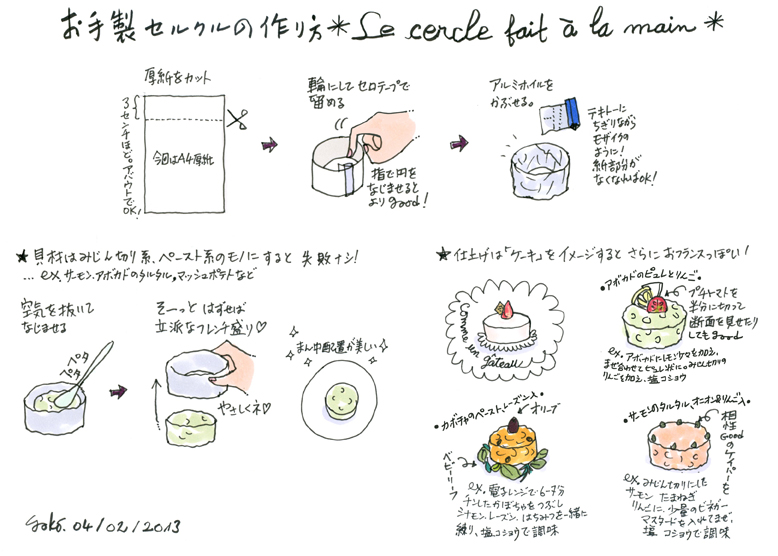 お手製セルクルの作り方*Le cercle fait à la main*
厚紙をカット
3センチほど。アバウトでOK!
今回はA4厚紙
輪にしてセロテープで
留める
指で円を
なじませると
よりgood!
アルミホイルを
かぶせる。
テキトーに
ちぎりながら
モザイクの
ように!
紙部分が
なくなればOK!
★具材はみじん切り系、ペースト系のモノにすると失敗ナシ!
... ex.サーモン、アボカドのタルタル、マッシュポテトなど
空気を抜いて
なじませる
ペタ
ペタ
そーっとはずせば
立派なフレンチ盛り♡
やさしくネ♡
まん中配置が美しい
★仕上げは「ケーキ」をイメージするとさらにおフランスっぽい!
Comme un gâteau
•アボカドのピュレとりんご•
プチトマトを
半分に切って
断面を見せたり
してもgood
ex.アボカドにレモン汁を加え、
りんごを加え、塩コショウ
•カボチャのペースト、レーズン入•
オリーブ
ベビーリーフ
ex.電子レンジで6~7分
チンしたかぼちゃをつぶし
シナモン、レーズン、はちみつを一緒に
練り、塩コショウで調味
•サーモンのタルタル、オニオン&りんご入•
相性goodのケイパーを
ex.みじん切りにした
サーモン たまねぎ
りんごに、少量のビネガー
マスタードを入れてまぜ、
塩コショウで調味
04/02/2013